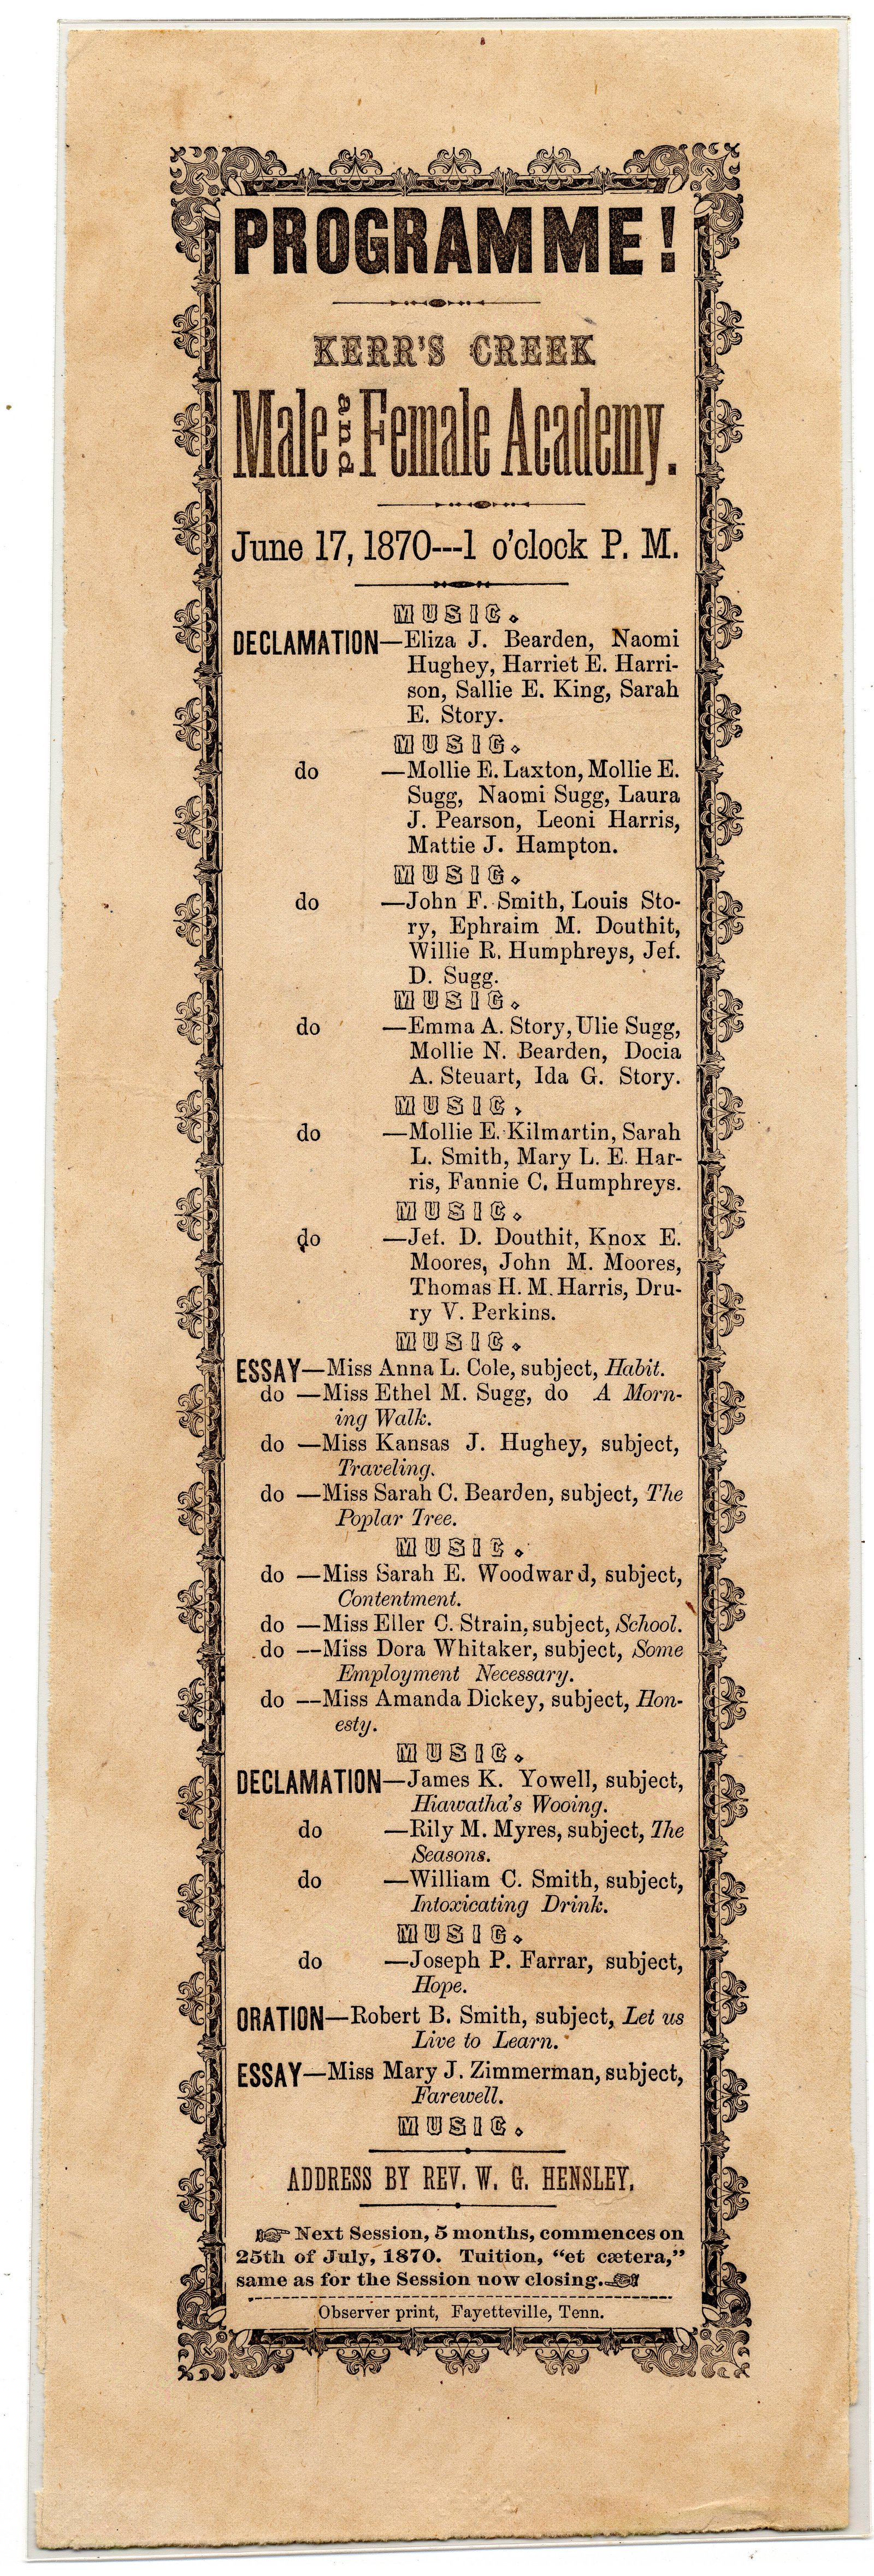 PROGRAMME!
KERR'S CREEK
Male and Female Academy.
June 17, 1870---1 o'clock P. M.
MUSIC.
DECLAMATION—Eliza J. Bearden, Naomi
Hughey, Harriet E. Harri-
son, Sallie E. King, Sarah
E. Story.
MUSIC.
do —Mollie E. Laxton, Mollie E.
Sugg, Naomi Sugg, Laura
J. Pearson, Leoni Harris,
Mattie J. Hampton.
MUSIC.
do —John F. Smith, Louis Sto-
ry, Ephraim M. Douthit,
Willie R. Humphreys, Jef.
D. Sugg.
MUSIC.
do —Emma A. Story, Ulie Sugg,
Mollie N. Bearden, Docia
A. Steuart, Ida G. Story.
MUSIC,
do —Mollie E. Kilmartin, Sarah
L. Smith, Mary L. E. Har-
ris, Fannie C. Humphreys.
MUSIC.
do —Jef. D. Douthit, Knox E.
Moores, John M. Moores,
Thomas H. M. Harris, Dru-
ry V. Perkins.
MUSIC.
ESSAY—Miss Anna L. Cole, subject, Habit.
do —Miss Ethel M. Sugg, do A Morn-
ing Walk.
do —Miss Kansas J. Hughey, subject,
Traveling.
do —Miss Sarah C. Bearden, subject, The
Poplar Tree.
MUSIC.
do —Miss Sarah E. Woodward, subject,
Contentment.
do —Miss Eller C. Strain, subject, School.
do —Miss Dora Whitaker, subject, Some
Employment Necessary.
do —Miss Amanda Dickey, subject, Hon-
esty.
MUSIC.
DECLAMATION—James K. Yowell, subject,
Hiawatha's Wooing.
do —Rily M. Myres, subject, The
Seasons.
do —William C. Smith, subject,
Intoxicating Drink.
MUSIC.
do —Joseph P. Farrar, subject,
Hope.
ORATION—Robert B. Smith, subject, Let us
Live to Learn.
ESSAY—Miss Mary J. Zimmerman, subject,
Farewell.
MUSIC.
ADDRESS BY REV. W. G. HENSLEY.
Next Session, 5 months, commences on
25th of July, 1870. Tuition, "et cætera,"
same as for the Session now closing.
Observer print, Fayetteville, Tenn.